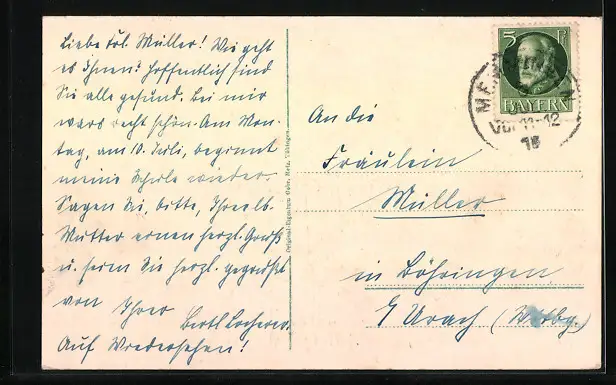 Liebe Frl. Müller! Wie geht
es Ihnen? Hoffentlich sind
Sie alle gesund. Bei mir
wars recht schön. Am Mon-
tag, am 10. Juli, beginnt
meine Schule wieder.
Sagen Sie, bitte, Ihrer lb.
Mutter einen herzl. Gruß
u. seien Sie herzl. gegrüßt
von Ihrer
Bertl
Auf Wiedersehen!
Original-Eigentum Gebr. Metz, Tübingen.
5 Pf
BAYERN
MEMMINGEN
Vor 11-12
An die
Fräulein
Müller
in Böhringen
Urach (Wttbg.)